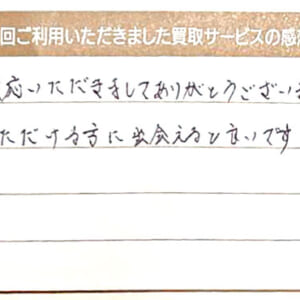 回ご利用いただきました買取サービスの感
応いただきましてありがとうござい
ただける方に出会えると良いです